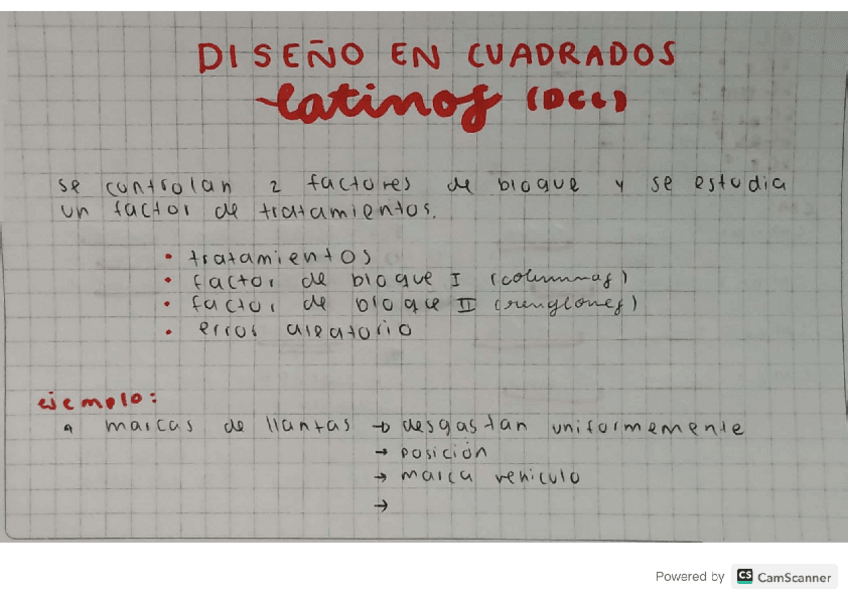 DISEÑO EN CUADRADOS
latinos (DCL)
se controlan 2 factores de bloque y se estudia
un factor de tratamientos.
• tratamientos
• factor de bloque I (columnas)
• factor de bloque II (renglones)
• error aleatorio
ejemplo:
marcas de llantas → desgastan uniformemente
→ posición
→ marca vehiculo
→
Powered by CS CamScanner